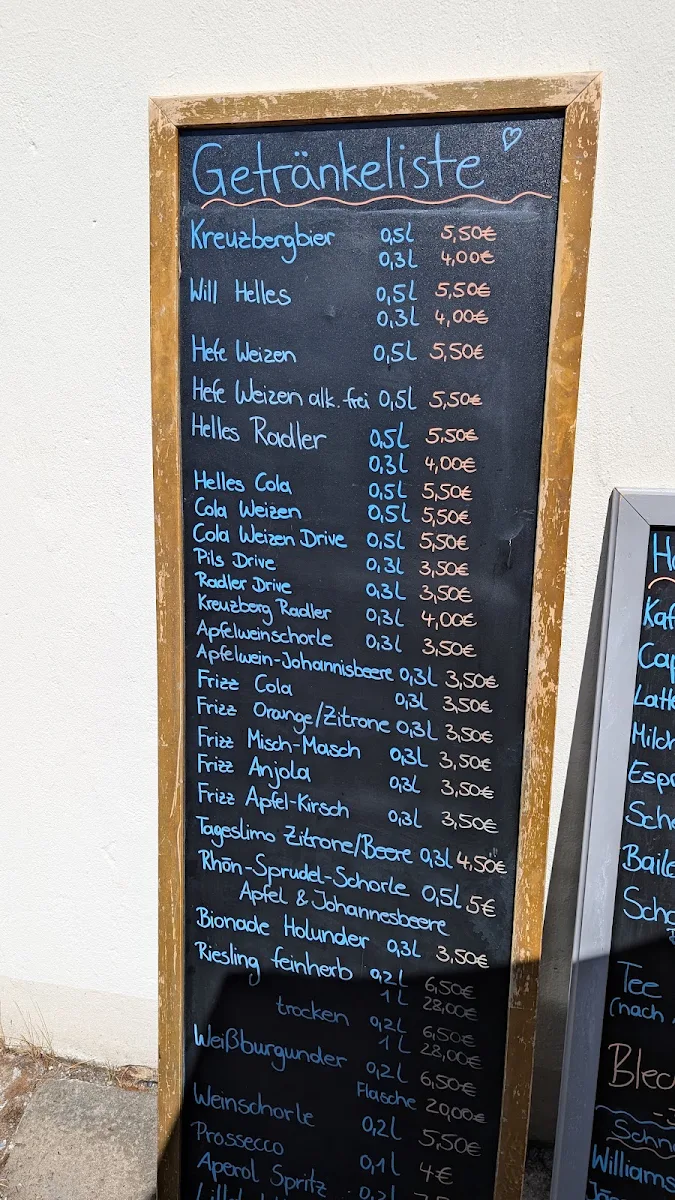 Getränkeliste
Kreuzbergbier 0,5l 5,50€
0,3l 4,00€
Will Helles 0,5l 5,50€
0,3l 4,00€
Hefe Weizen 0,5l 5,50€
Hefe Weizen alk. frei 0,5l 5,50€
Helles Radler 0,5l 5,50€
0,3l 4,00€
Helles Cola 0,5l 5,50€
Cola Weizen 0,5l 5,50€
Cola Weizen Drive 0,5l 5,50€
Pils Drive 0,3l 3,50€
Radler Drive 0,3l 3,50€
Kreuzberg Radler 0,3l 4,00€
Apfelweinschorle 0,3l 3,50€
Apfelwein-Johannisbeere 0,3l 3,50€
Frizz Cola 0,3l 3,50€
Frizz Orange/Zitrone 0,3l 3,50€
Frizz Misch-Masch 0,3l 3,50€
Frizz Anjola 0,3l 3,50€
Frizz Apfel-Kirsch 0,3l 3,50€
Tageslimo Zitrone/Beere 0,3l 4,50€
Rhön-Sprudel-Schorle 0,5l 5€
Apfel & Johannesbeere
Bionade Holunder 0,3l 3,50€
Riesling feinherb 0,2l 6,50€
1l 28,00€
trocken 0,2l 6,50€
1l 28,00€
Weißburgunder 0,2l 6,50€
Flasche 20,00€
Weinschorle 0,2l 5,50€
Prossecco 0,1l 4€
Aperol Spritz
Kaf
Cap
Latt
Milch
Espr
Scho
Baile
Scho
Tee
(nach
Blec
Schn
Williams